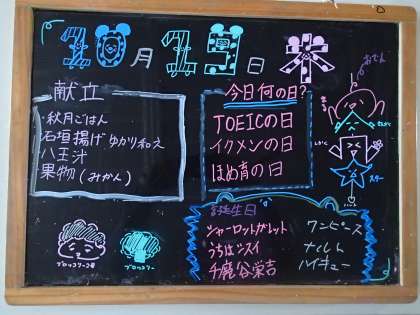 10月19日 木
献立
・秋月ごはん
石垣揚げゆかり和え
八王汁
果物(みかん)
今日何の日?
TOEICの日
イクメンの日
ほめ育の日
おでん
スター
お誕生日
シャーロットガレット ワンピース
うちはシスイ ナルト
千鹿谷栄吉 ハイキュー
ブロッコリー